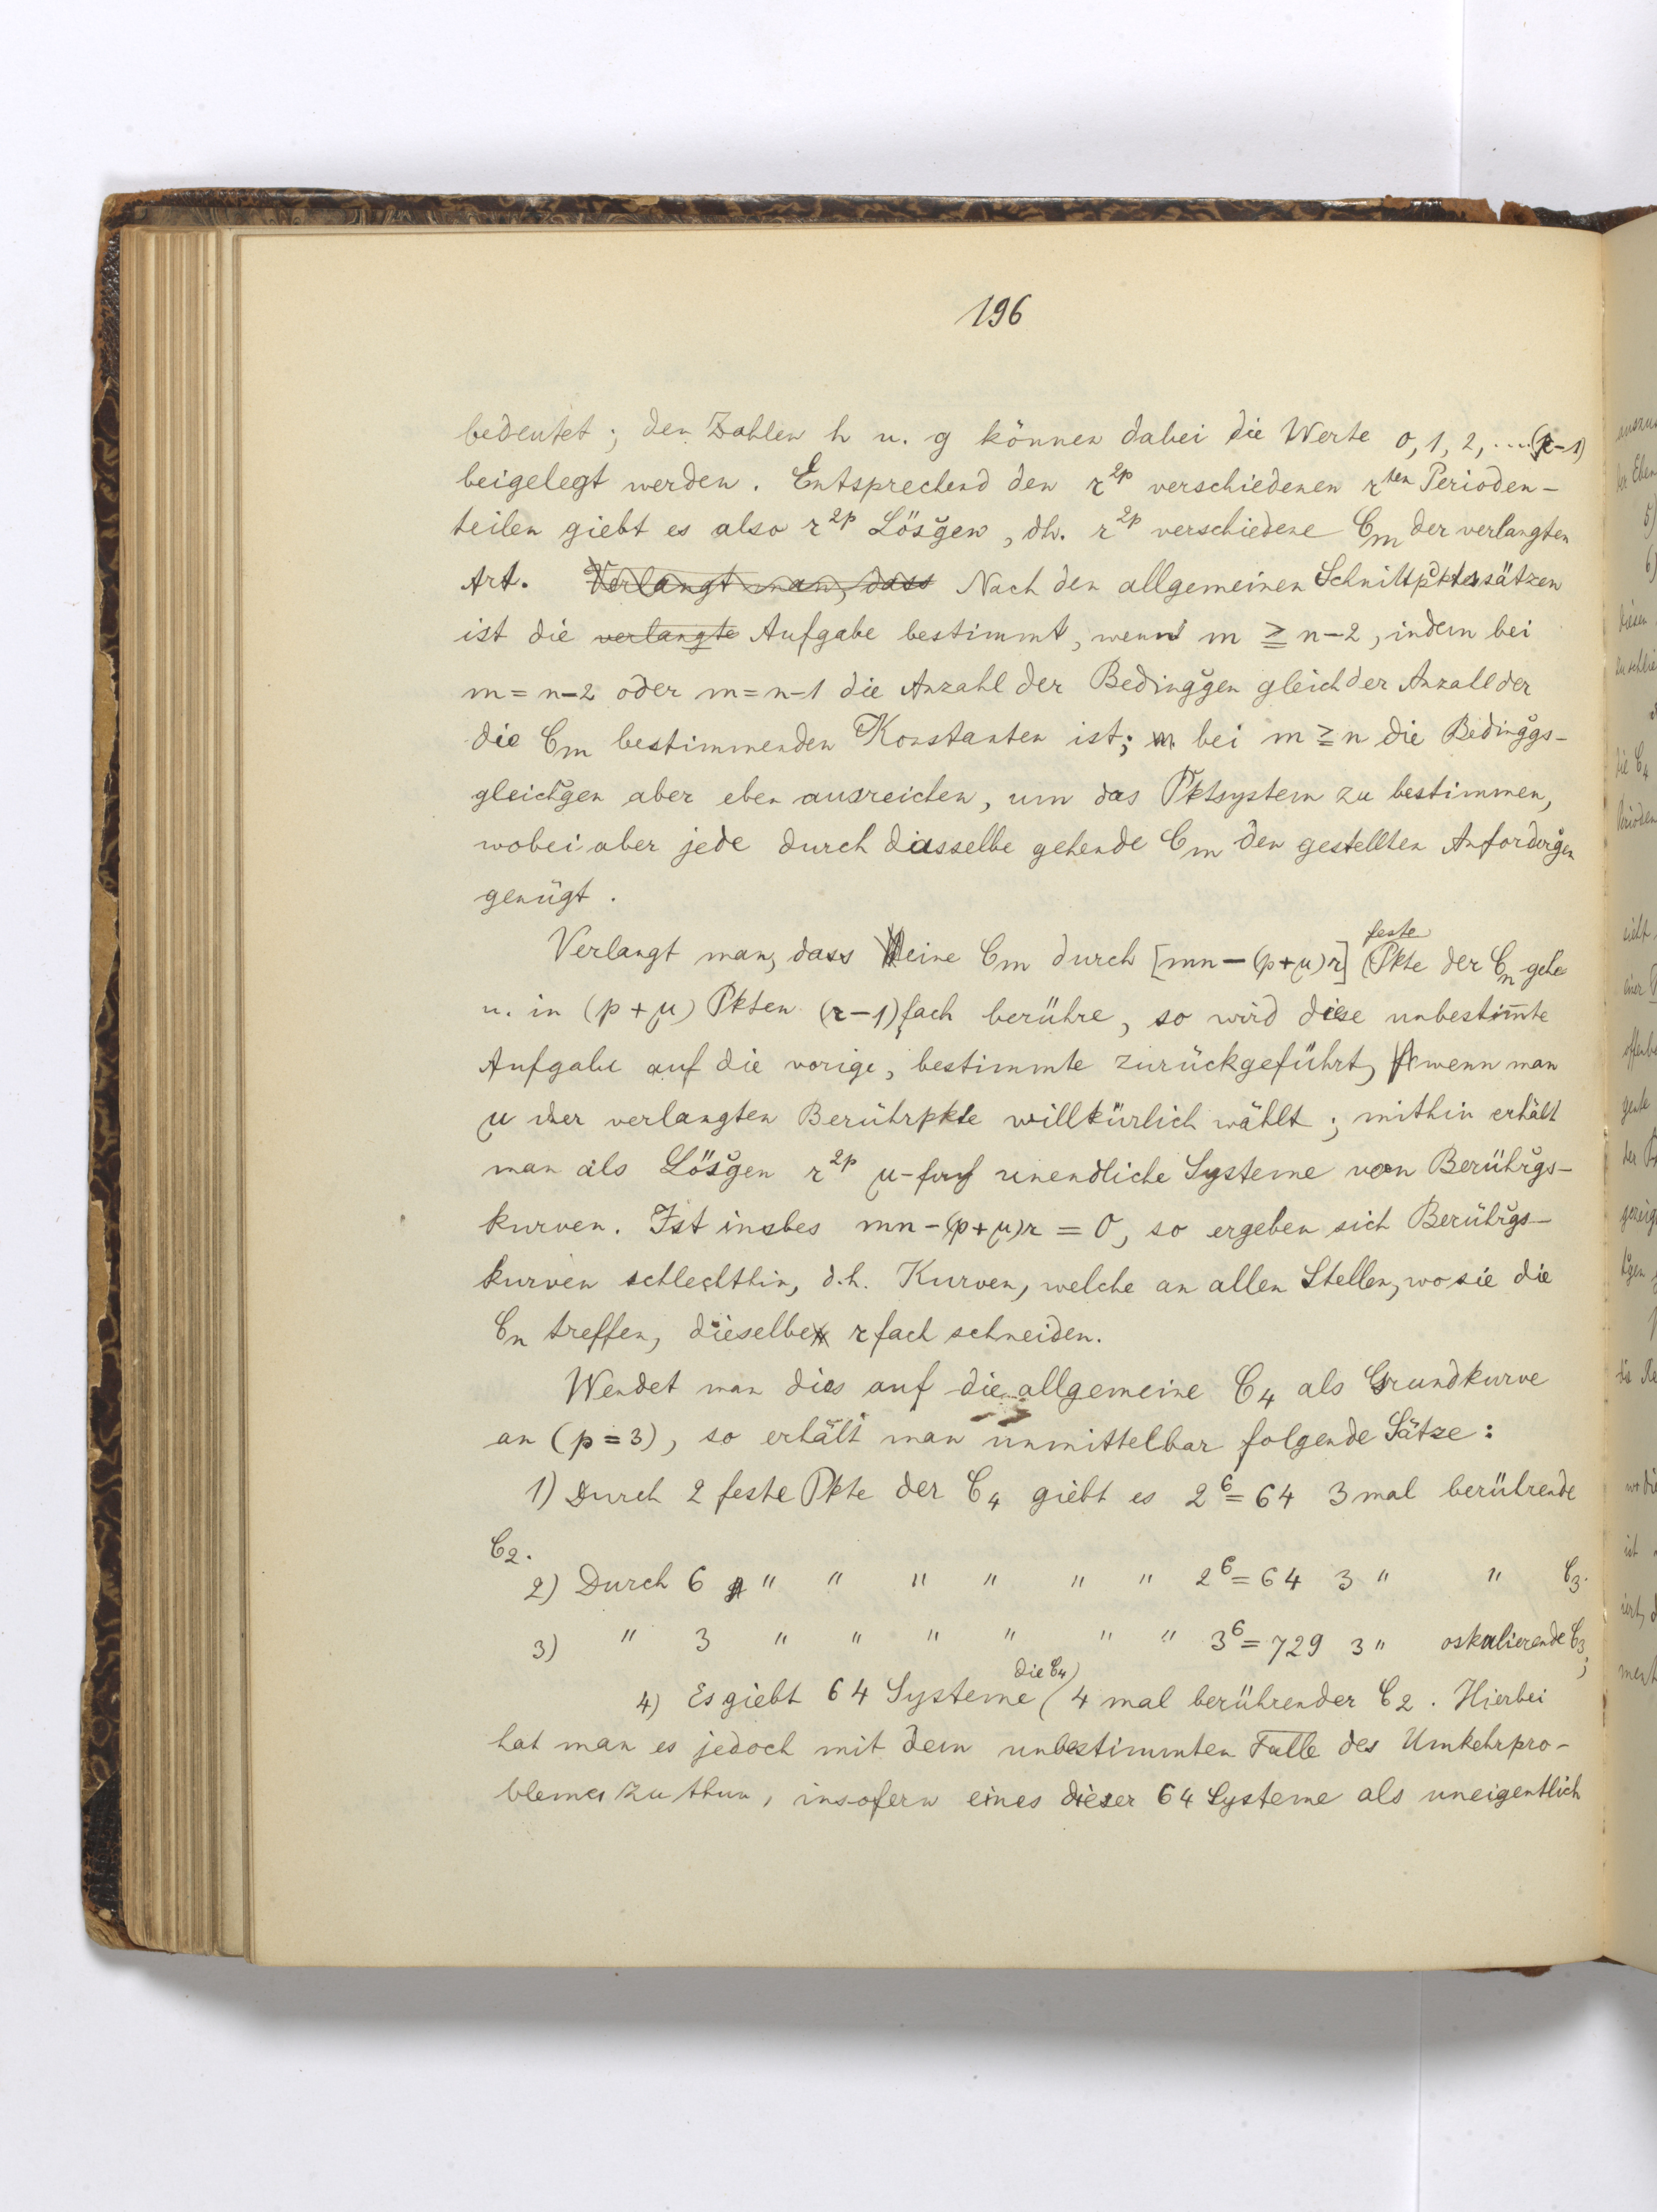 196
bedeutet; den Zahlen h u. g können dabei die Werte 0, 1, 2, ....(r-1)
beigelegt werden. Entsprechend den r^2p verschiedenen r^ten Perioden-
teilen giebt es also r^2p Lös̆gen, dh. r^2p verschiedene C_m der verlangten
Art. Verlangt man, dass Nach den allgemeinen Schnittpktssätzen
ist die verlangte Aufgabe bestimmt, wenn m ≧ n-2, indem bei
m = n-2 oder m = n-1 die Anzahl der Bedinğgen gleich der Anzall der
die C_m bestimmenden Konstanten ist; bei m ≧ n die Bedinğgs-
gleich̆gen aber eben ausreichen, um das Pktsystem zu bestimmen,
wobei aber jede durch dasselbe gehende C_m den gestellten Anforder̆gen
genügt.
Verlangt man, dass eine C_m durch [mn - (p+μ)r] feste Pkte der C_n gehe
u. in (p+μ) Pkten (r-1)fach berühre, so wird diese unbestim̅te
Aufgabe auf die vorige, bestimmte zurückgeführt, wenn man
μ der verlangten Berührpkte willkürlich wählt; mithin erhält
man als Lös̆gen r^2p μ-fach unendliche Systeme von Berühr̆gs-
kurven. Ist insbes mn - (p+μ)r = 0, so ergeben sich Berühr̆gs-
kurven schlechthin, d.h. Kurven, welche an allen Stellen, wo sie die
C_n treffen, dieselbe r fach schneiden.
Wendet man dies auf die allgemeine C_4 als Grundkurve
an (p = 3), so erhält man unmittelbar folgende Sätze:
1) Durch 2 feste Pkte der C_4 giebt es 2^6 = 64 3 mal berührende
C_2.
2) Durch 6 " " " " " " 2^6 = 64 3 " " C_3.
3) " 3 " " " " " " 3^6 = 729 3 " oskulierende C_3;
4) Es giebt 64 Systeme die C_4 4 mal berührender C_2. Hierbei
hat man es jedoch mit dem unbestimmten Falle des Umkehrpro-
blemes zu thun, insofern eines dieser 64 Systeme als uneigentlich